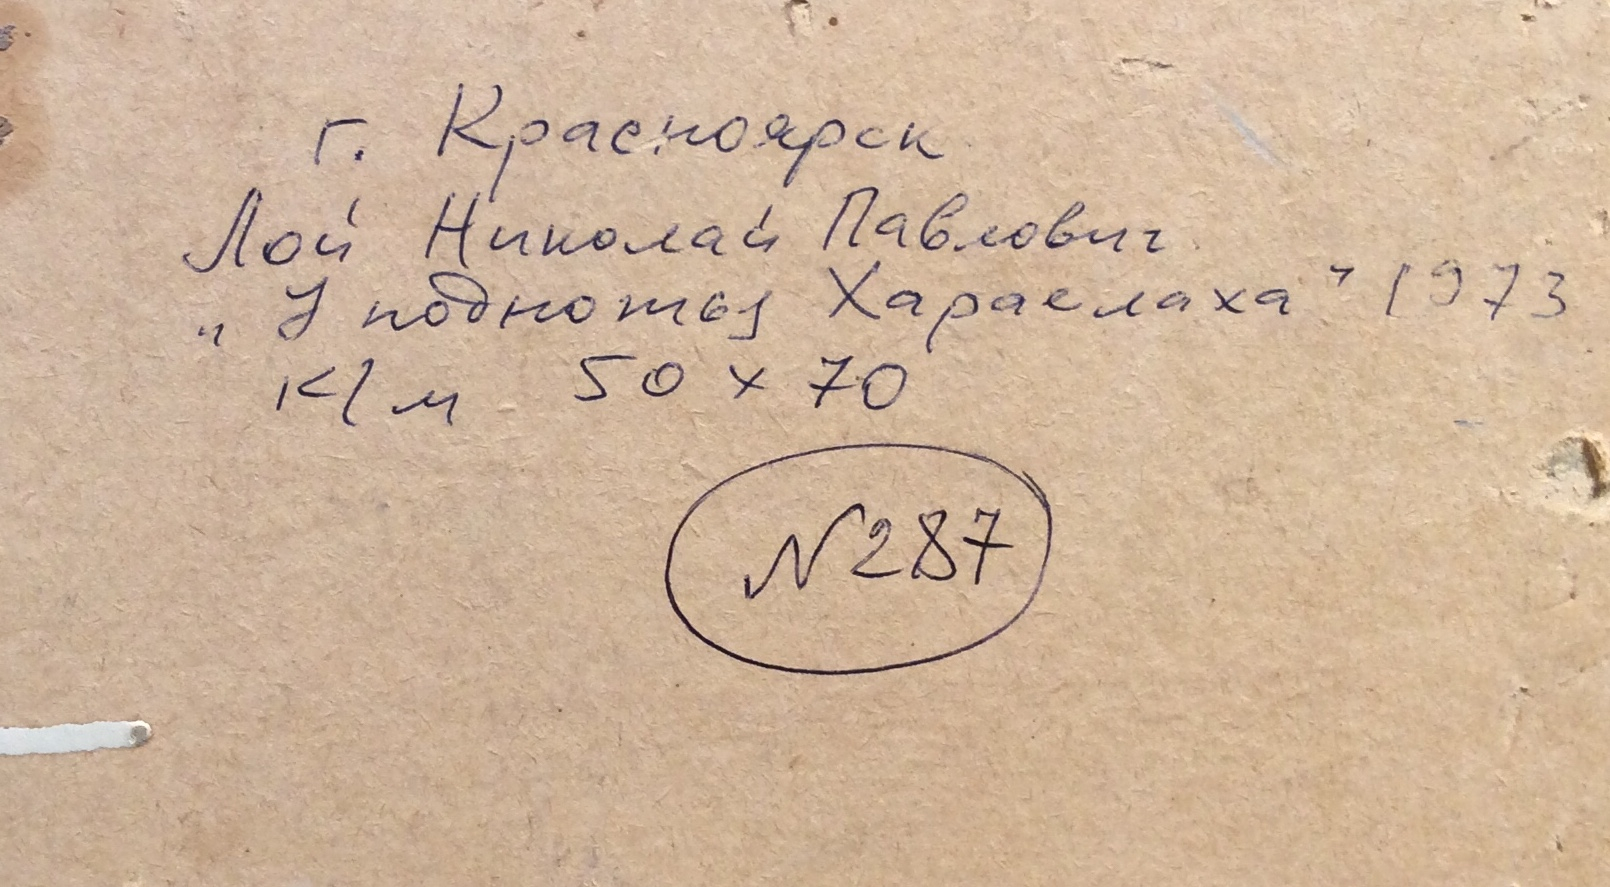 г. Красноярск
Лой Николай Павлович
„У подножья Хараелаха" 1973
к/м 50 х 70
N287